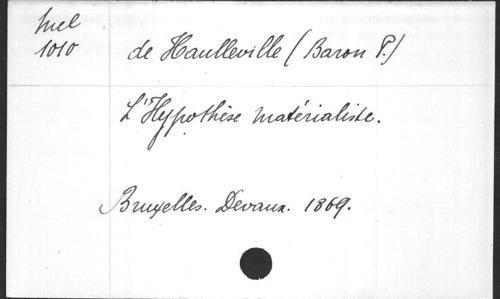 Mel
1010
de Haulleville (Baron P.)
L'Hypothèse matérialiste.
Bruxelles. Devaux. 1869.